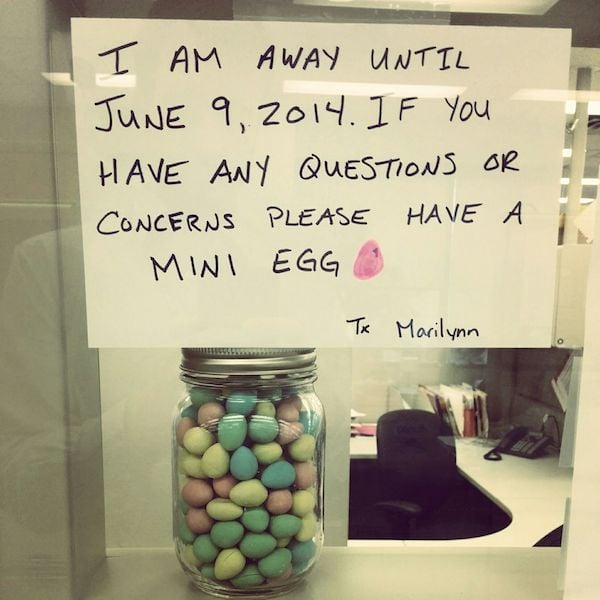 I AM AWAY UNTIL
JUNE 9, 2014. IF YOU
HAVE ANY QUESTIONS OR
CONCERNS PLEASE HAVE A
MINI EGG
Tx Marilynn